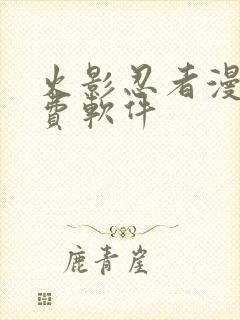 火影忍者漫
費軟件
鹿青崖